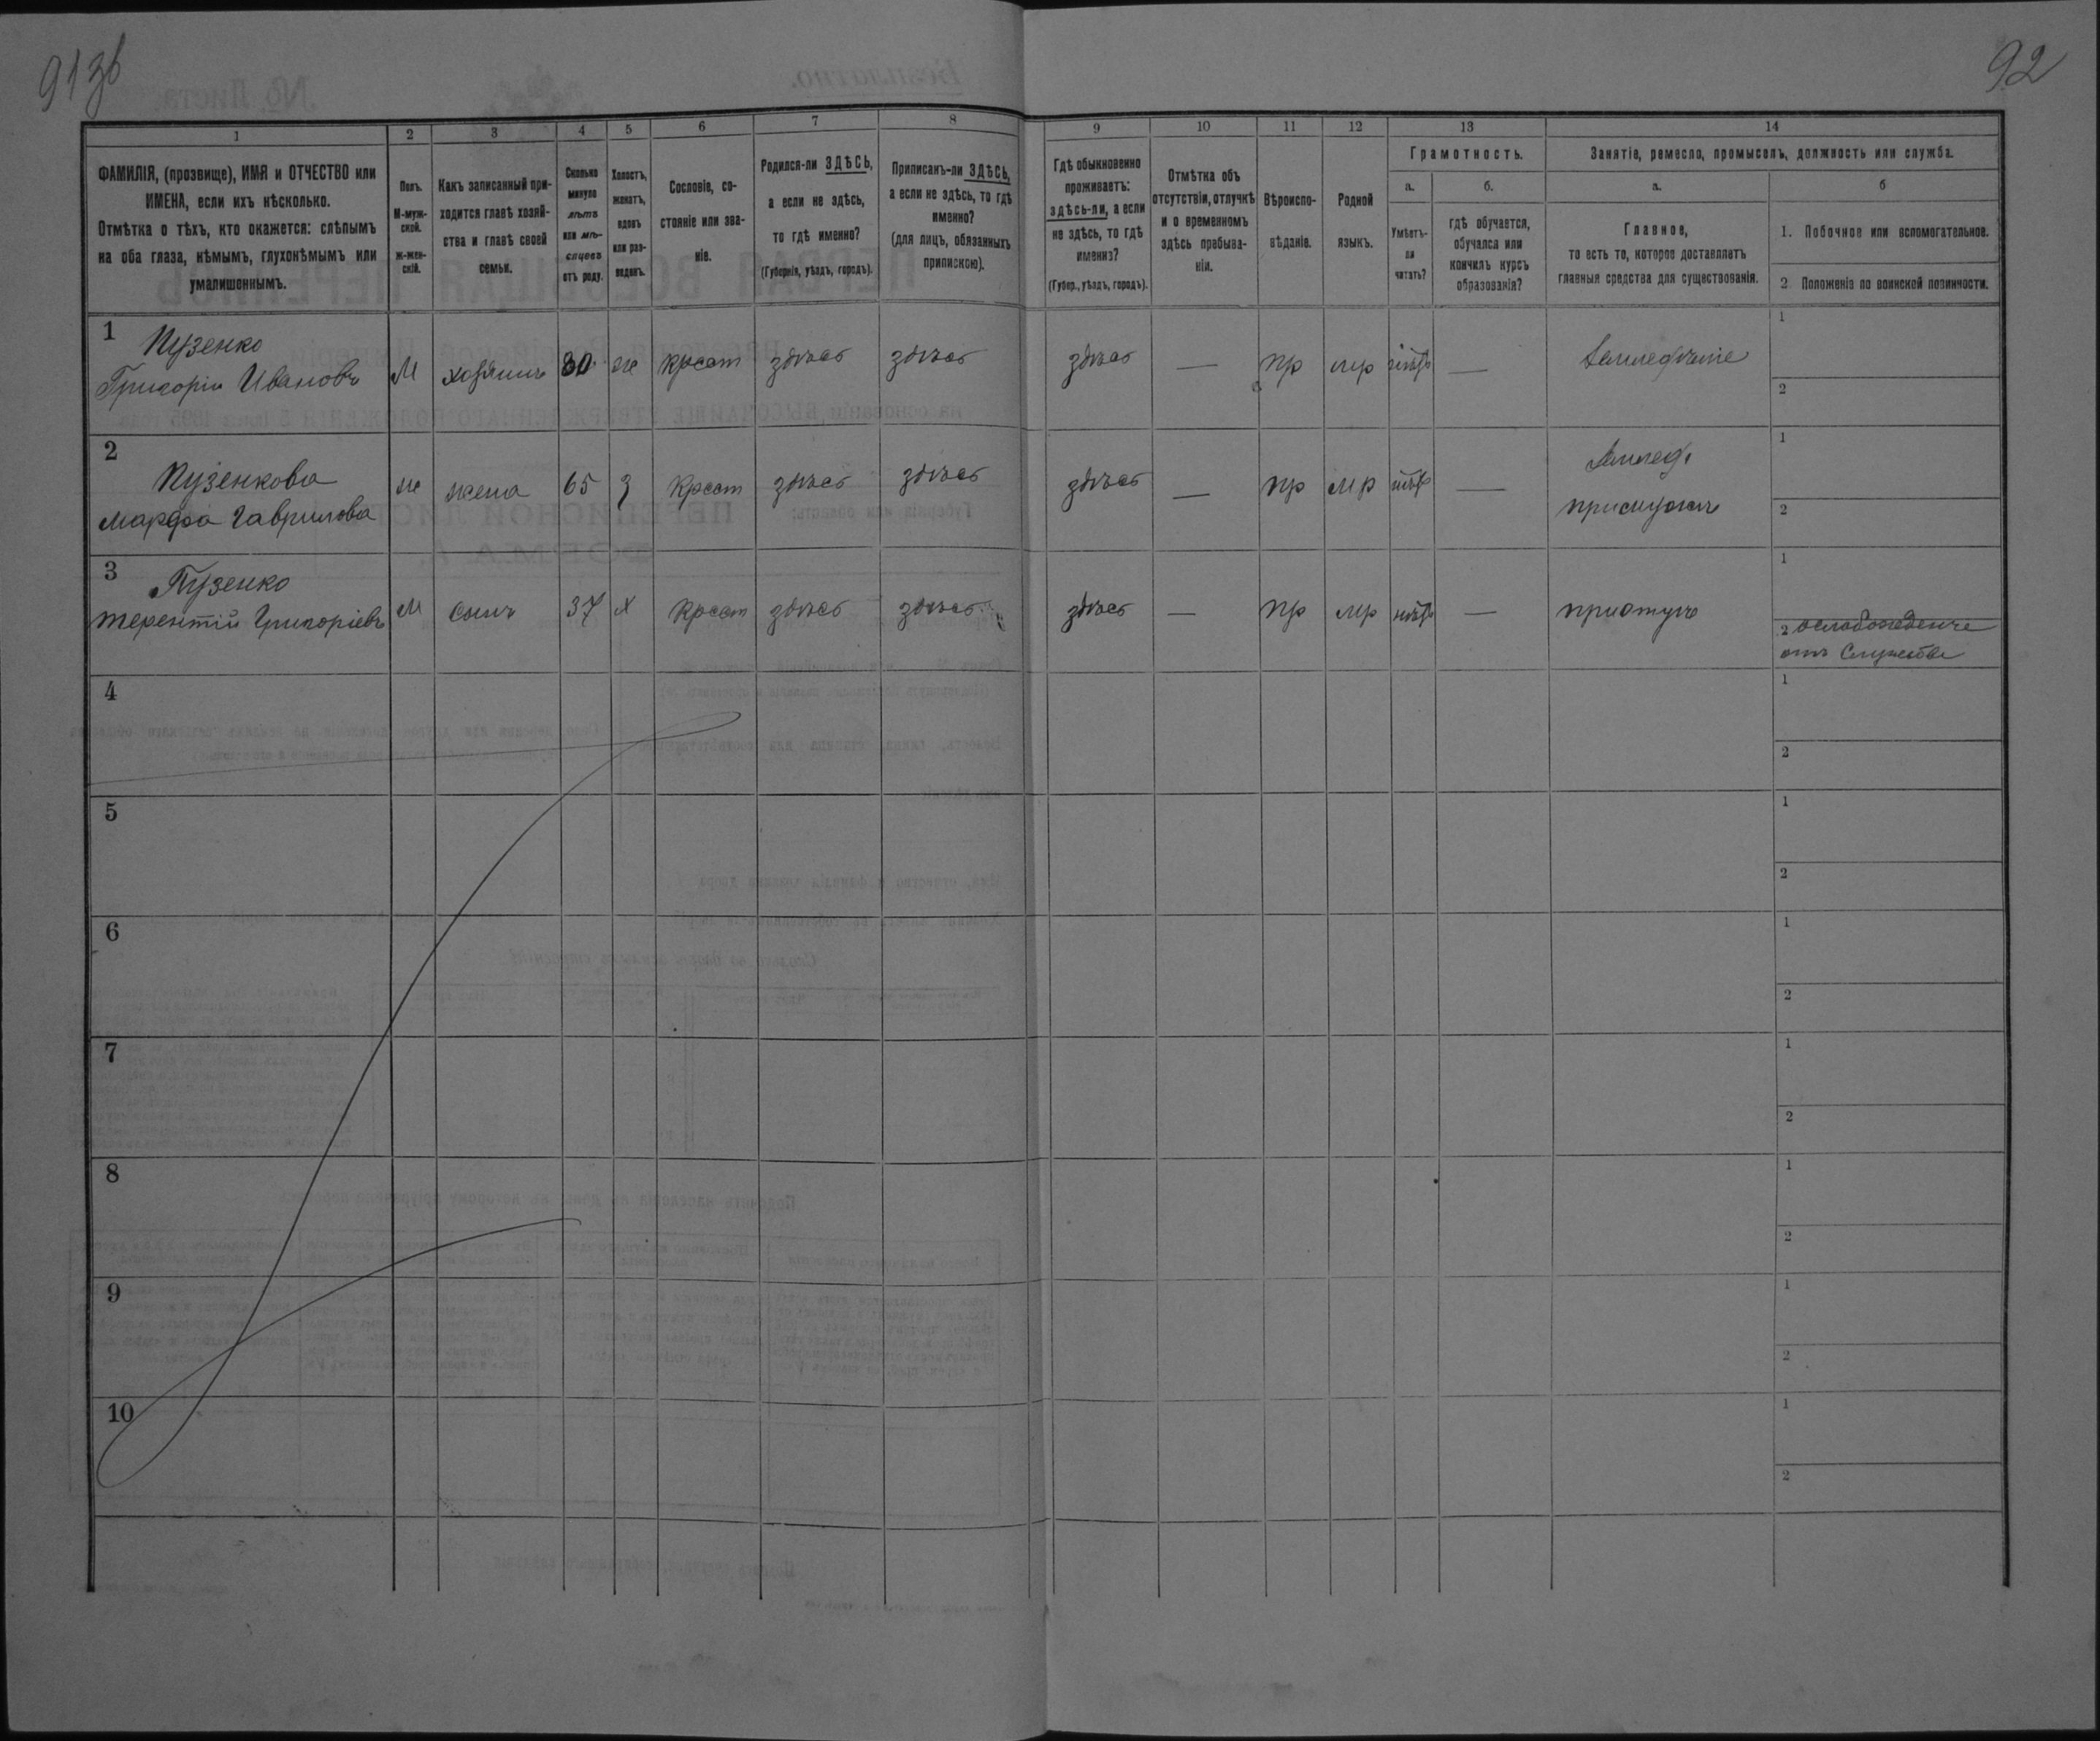 91 зв
92
1 2 3 4 5 6 7 8 9 10 11 12 13 14
ФАМИЛІЯ, (прозвище), ИМЯ и ОТЧЕСТВО или
ИМЕНА, если ихъ нѣсколько.
Отмѣтка о тѣхъ, кто окажется: слѣпымъ
на оба глаза, нѣмымъ, глухонѣмымъ или
умалишоннымъ.
Полъ.
М-муж-
ской.
ж-жен-
скій.
Какъ записанный при-
ходится главѣ хозяй-
ства и главѣ своей
семьи.
Сколько
минуло
лѣтъ
или мѣ-
сяцевъ
отъ роду.
Холостъ,
женатъ,
вдовъ
или раз-
веденъ.
Сословіе, со-
стояніе или зва-
ніе.
Родился-ли ЗДѢСЬ,
а если не здѣсь,
то гдѣ именно?
(Губернія, уѣздъ, городъ).
Приписанъ-ли ЗДѢСЬ,
а если не здѣсь, то гдѣ
именно?
(для лицъ, обязанныхъ
припискою).
Гдѣ обыкновенно
проживаетъ:
здѣсь-ли, а если
не здѣсь, то гдѣ
именно?
(Губер., уѣздъ, городъ).
Отмѣтка объ
отсутствіи, отлучкѣ
и о временномъ
здѣсь пребыва-
ніи.
Вѣроиспо-
вѣданіе.
Родной
языкъ.
Грамотность.
а.
Умѣетъ-
ли
читать?
б.
гдѣ обучается,
обучался или
кончилъ курсъ
образованія?
Занятіе, ремесло, промыселъ, должность или служба.
а.
Главное,
то есть то, которое доставляетъ
главныя средства для существованія.
б
1. Побочное или вспомогательное.
2 Положеніе по воинской повинности.
1
Пузенко
Григорій Ивановъ
М хозяинъ 80 ж Крест здѣсь здѣсь здѣсь — пр мр нѣтъ — Земледѣліе
1
2
2
Пузенкова
Марфа Гаврилова
ж жена 65 з Крест здѣсь здѣсь здѣсь — пр мр нѣтъ — Земледѣ
1
2
3
Пузенко
Терентій Григоріевъ
М сынъ 37 х Крест здѣсь здѣсь здѣсь — пр мр нѣтъ — пастухъ
1
2 ослобожденъ
отъ Службы
4
1
2
5
1
2
6
1
2
7
1
2
8
1
2
9
1
2
10
1
2